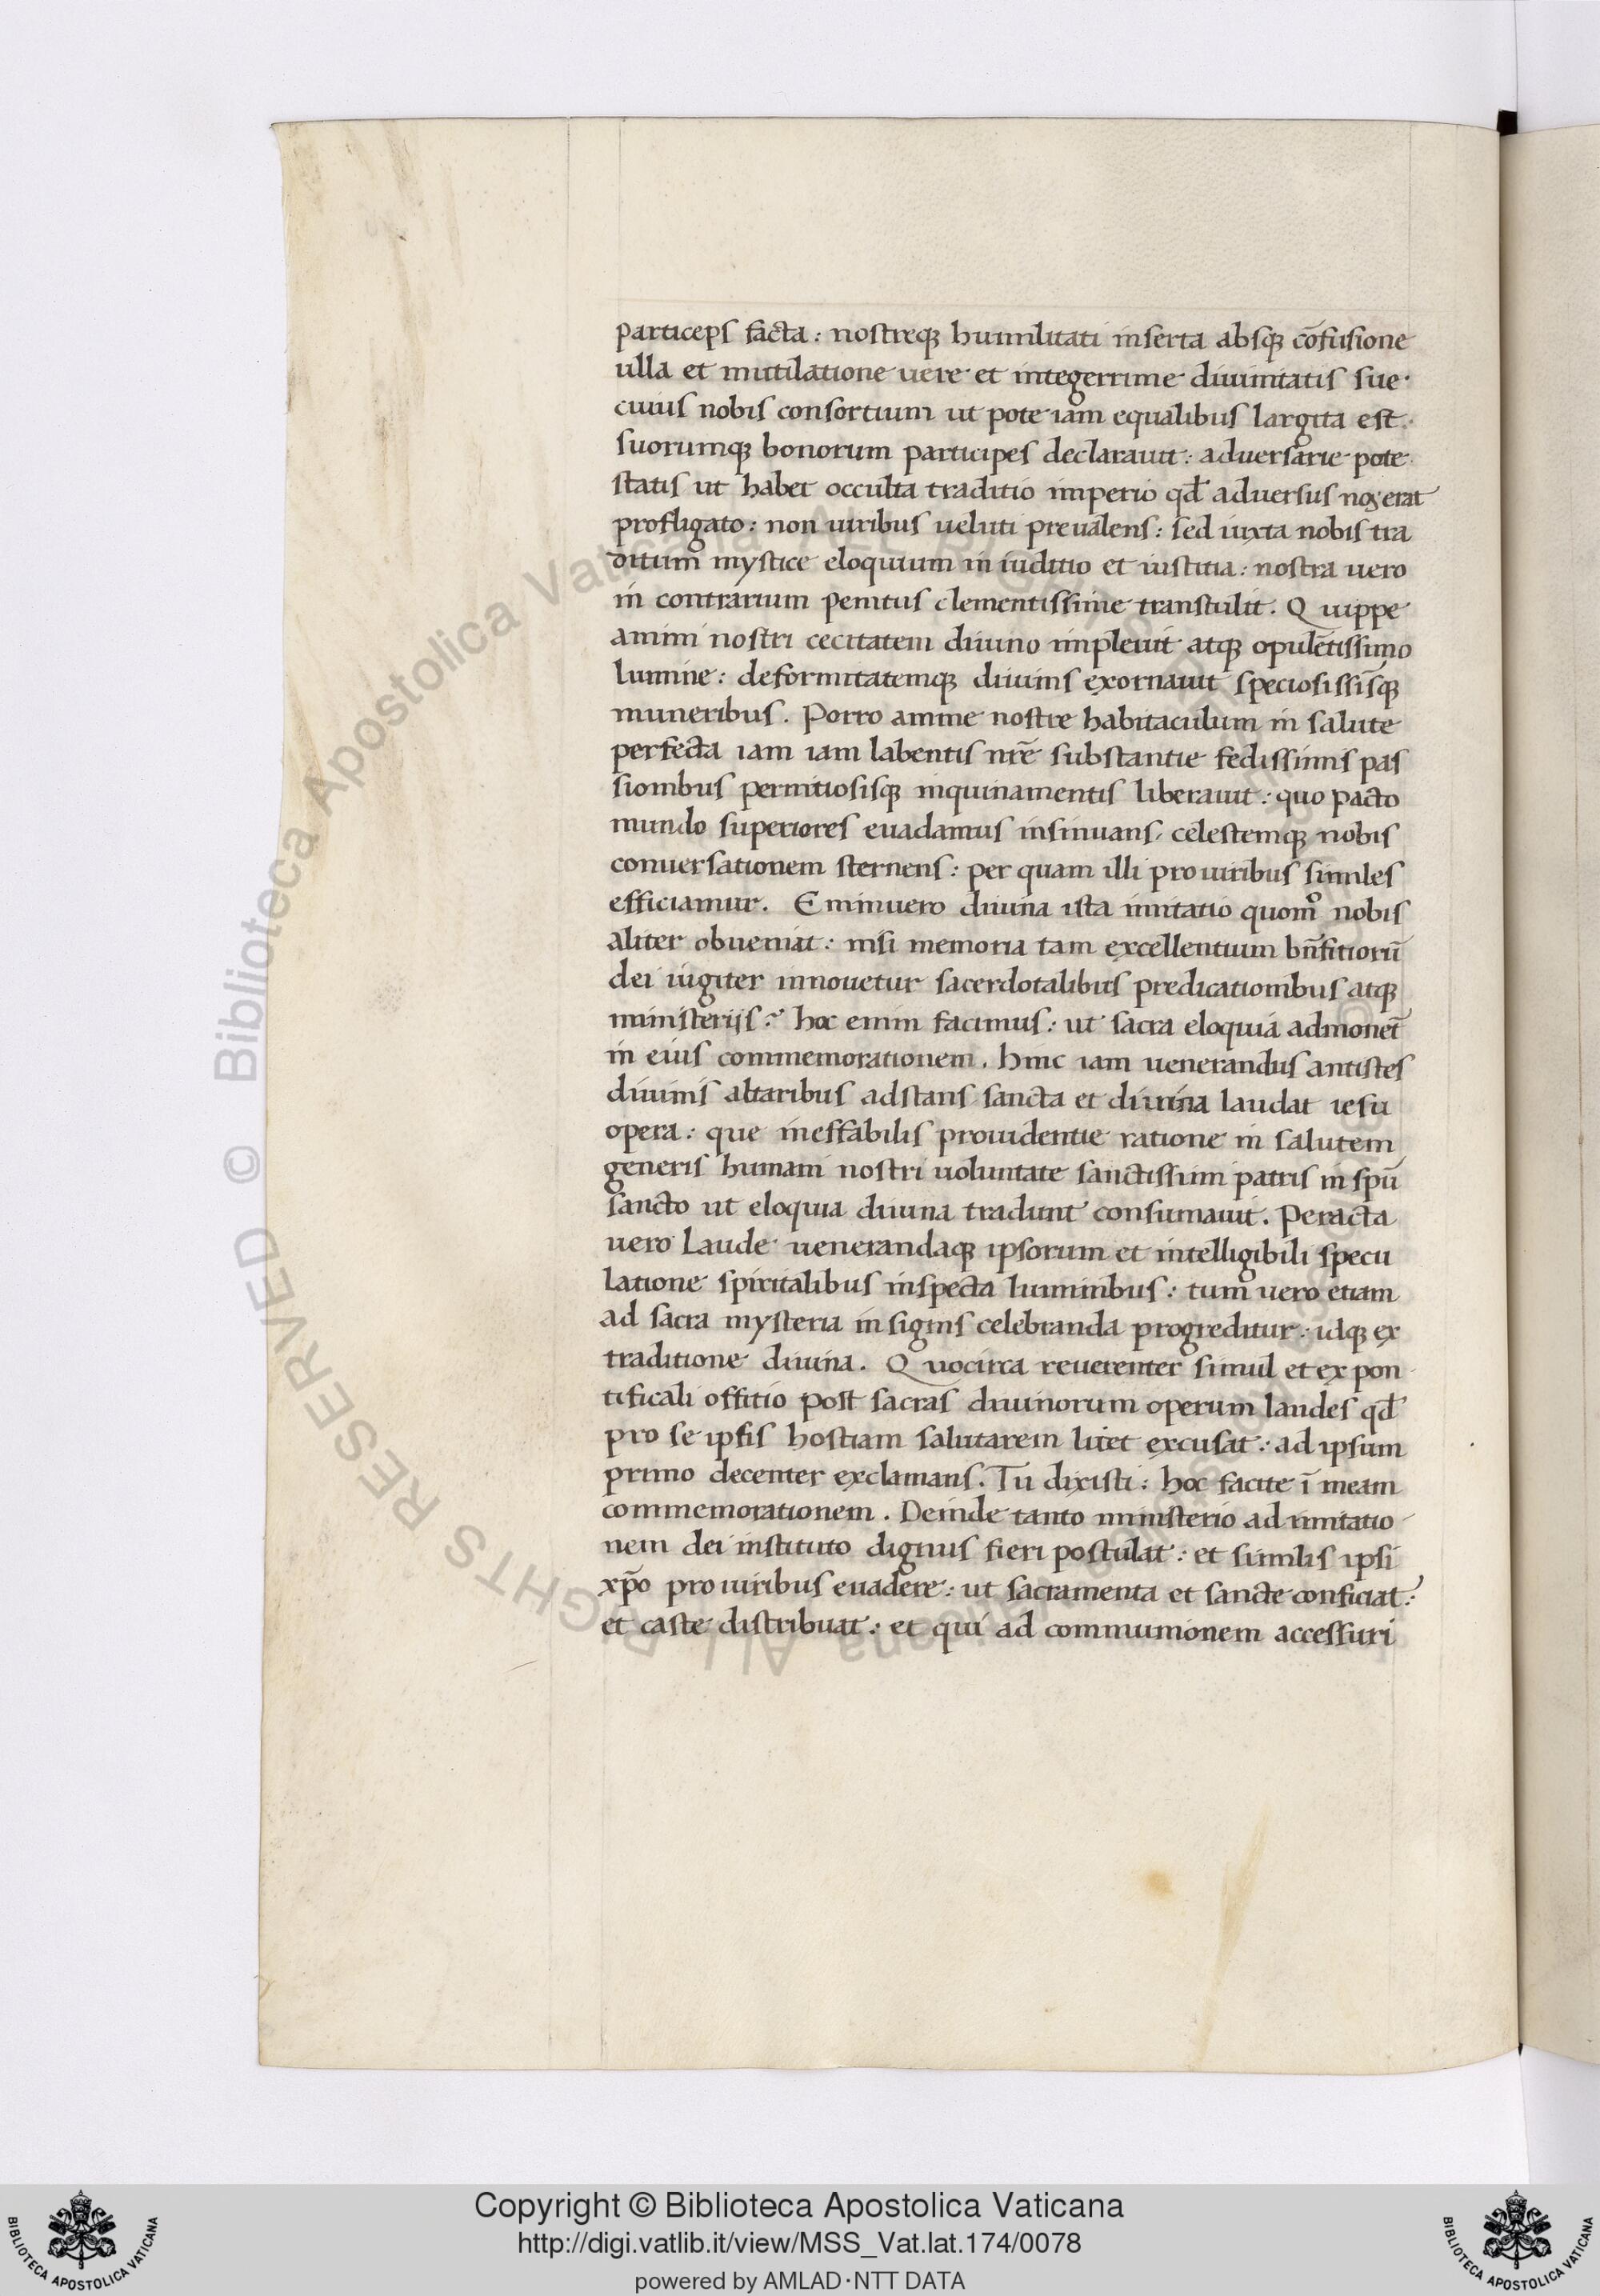 particeps facta: nostreq; humilitati inserta absq; cōfusione
ulla et mutilatione uere et integerrime diuinitatis sue.
cuius nobis consortium ut pote iam equalibus largita est.
suorumq; bonorum participes declarauit: aduersarie pote
statis ut habet occulta traditio imperio qđ aduersus nos erat
profligato: non uiribus ueluti preualens: sed iuxta nobis tra
ditum mystice eloquium in iuditio et iustitia: nostra uero
in contrarium penitus clementissime transtulit. Quippe
animi nostri cecitatem diuino impleuit atq; opulētissimo
lumine: deformitatemq; diuinis exornauit speciosissīsq;
muneribus. Porro anime nostre habitaculum in salute
perfecta iam iam labentis nrē substantie fedissimis pas
sionibus pernitiosisq; inquinamentis liberauit: quo pacto
mundo superiores euadamus insinuans, celestemq; nobis
conuersationem sternens: per quam illi pro uiribus similes
efficiamur. Enimuero diuina ista imitatio quomº nobis
aliter obueniat: nisi memoria tam excellentium bn̄fitiorū
dei iugiter innouetur sacerdotalibus predicationibus atq;
ministerijs? hoc enim facimus: ut sacra eloquia admonēt
in eius commemorationem. hinc iam uenerandus antistes
diuinis altaribus adstans sancta et diuina laudat iesu
opera: que ineffabilis prouidentie ratione in salutem
generis humani nostri uoluntate sanctissimi patris in spū
sancto ut eloquia diuina tradunt consumauit. Peracta
uero laude uenerandaq; ipsorum et intelligibili specu
latione spiritalibus inspecta luminibus: tum uero etiam
ad sacra mysteria insignis celebranda progreditur: idq; ex
traditione diuina. Quocirca reuerenter simul et ex pon
tificali offitio post sacras diuinorum operum laudes qđ
pro se ipsis hostiam salutarem litet excusat: ad ipsum
primo decenter exclamans. Tu dixisti: hoc facite ī meam
commemorationem. Deinde tanto ministerio ad imitatio
nem dei instituto dignus fieri postulat: et similis ipsi
xp̄o pro uiribus euadere: ut sacramenta et sancte conficiat:
et caste distribuat: et qui ad communionem accessuri
© Biblioteca Apostolica Vaticana ALL RIGHTS RESERVED
Copyright © Biblioteca Apostolica Vaticana
http://digi.vatlib.it/view/MSS_Vat.lat.174/0078
powered by AMLAD·NTT DATA
BIBLIOTECA APOSTOLICA VATICANA
BIBLIOTECA APOSTOLICA VATICANA